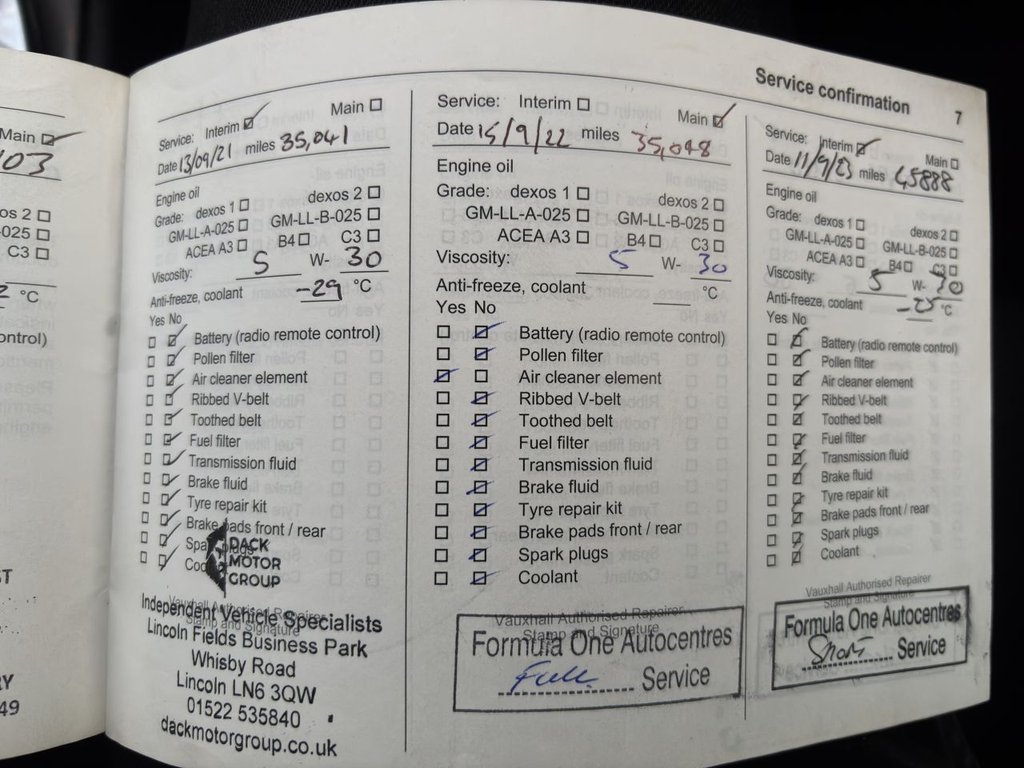 Main
103
os 2
-025
C3
2 °C
ontrol)
ST
RY
49
Service: Interim Main
Date 13/09/21 miles 35,041
Engine oil
Grade: dexos 1 dexos 2
GM-LL-A-025 GM-LL-B-025
ACEA A3 B4 C3
Viscosity: 5 W- 30
Anti-freeze, coolant -29 °C
Yes No
Battery (radio remote control)
Pollen filter
Air cleaner element
Ribbed V-belt
Toothed belt
Fuel filter
Transmission fluid
Brake fluid
Tyre repair kit
Brake pads front / rear
Spark plugs
Coolant
DACK
MOTOR
GROUP
Vauxhall Authorised Repairer
Stamp and Signature
Independent Vehicle Specialists
Lincoln Fields Business Park
Whisby Road
Lincoln LN6 3QW
01522 535840
dackmotorgroup.co.uk
Service: Interim Main
Date 15/9/22 miles 35,048
Engine oil
Grade: dexos 1 dexos 2
GM-LL-A-025 GM-LL-B-025
ACEA A3 B4 C3
Viscosity: 5 W- 30
Anti-freeze, coolant °C
Yes No
Battery (radio remote control)
Pollen filter
Air cleaner element
Ribbed V-belt
Toothed belt
Fuel filter
Transmission fluid
Brake fluid
Tyre repair kit
Brake pads front / rear
Spark plugs
Coolant
Vauxhall Authorised Repairer
Stamp and Signature
Formula One Autocentres
Full Service
Service confirmation 7
Service: Interim Main
Date 11/9/23 miles 45888
Engine oil
Grade: dexos 1 dexos 2
GM-LL-A-025 GM-LL-B-025
ACEA A3 B4 C3
Viscosity: 5 W- 30
Anti-freeze, coolant -25 °C
Yes No
Battery (radio remote control)
Pollen filter
Air cleaner element
Ribbed V-belt
Toothed belt
Fuel filter
Transmission fluid
Brake fluid
Tyre repair kit
Brake pads front / rear
Spark plugs
Coolant
Vauxhall Authorised Repairer
Stamp and Signature
Formula One Autocentres
Short Service